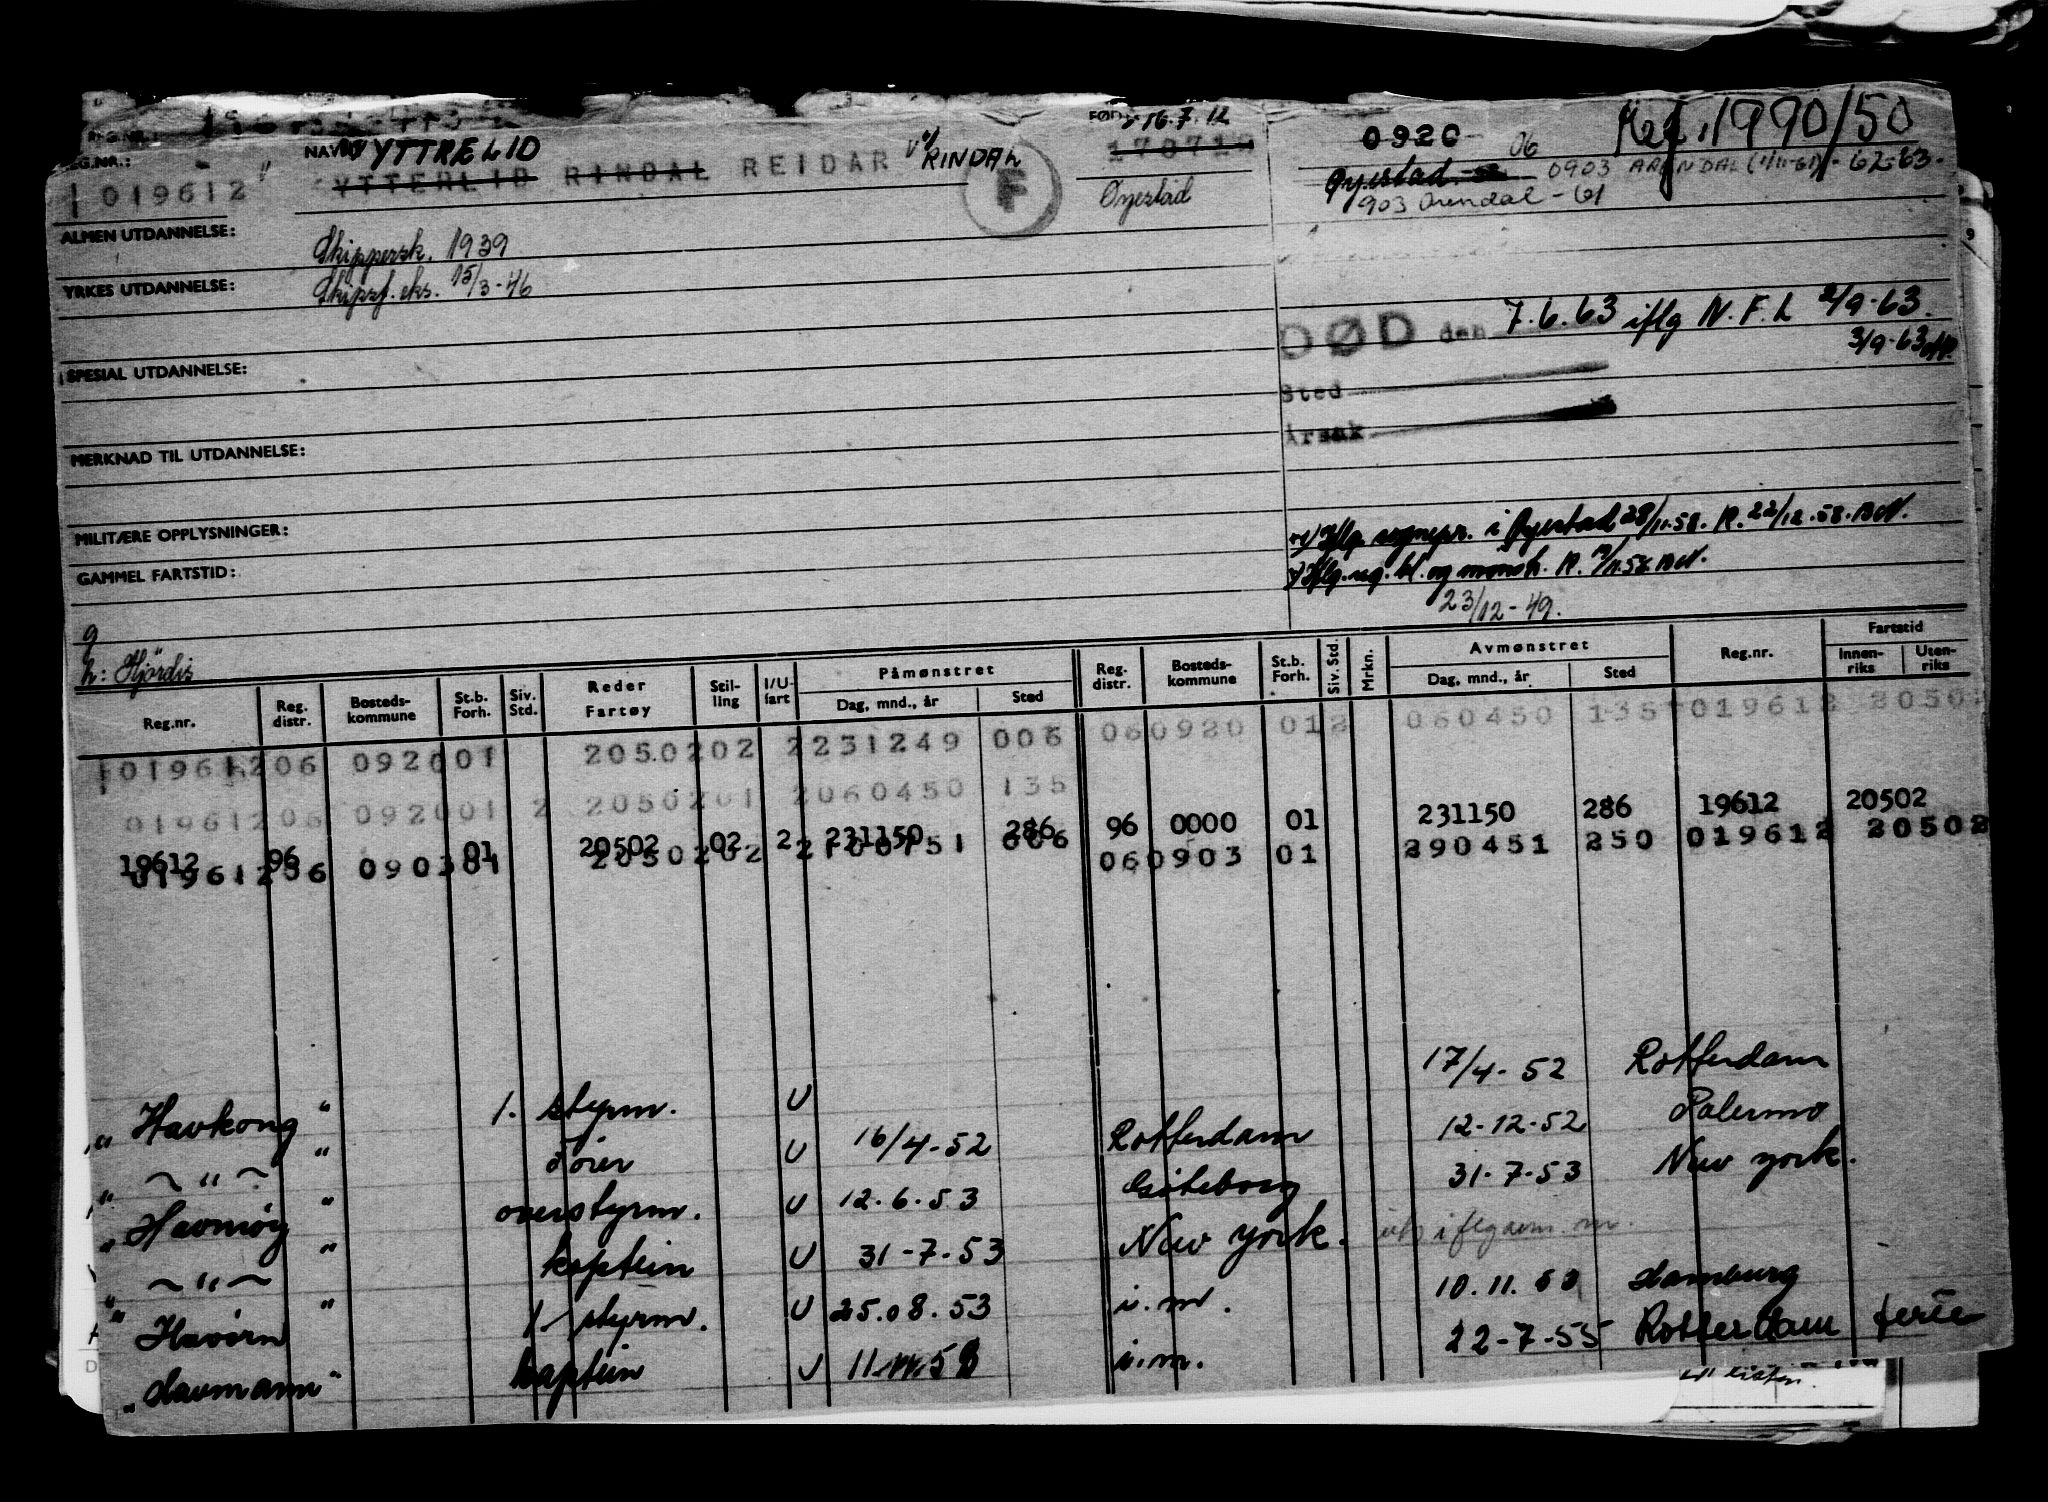 REG.NR.:
NAVN: YTTRELID
FØDT 16.7.12
0920 06
1990/50
REG.NR.:
019612
YTTERLID RINDAL REIDAR RINDAL
F
170712
Øyestad
Øyestad 0903 ARENDAL (1/11-61) - 62-63.
903 Arendal - 61
ALMEN UTDANNELSE:
Skippersk. 1939
YRKES UTDANNELSE:
Skipsf. eks. 15/3-46
DØD den 7.6.63 iflg N.F.L 2/9-63.
3/9-63
SPESIAL UTDANNELSE:
Sted
Årsak
MERKNAD TIL UTDANNELSE:
MILITÆRE OPPLYSNINGER:
Iflg sognepr. i Øyestad 28/11.58. R. 22/12.58.
GAMMEL FARTSTID:
Iflg. og mønstr. R.
23/12-49.
g
h: Hjördis
Reg.nr. Reg. distr. Bosteds-kommune St.b. Forh. Siv. Std. Reder Fartøy Stil-ling I/U-fart Påmønstret Dag, mnd., år Sted Reg. distr. Bosteds-kommune St.b. Forh. Siv. Std. Mrkn. Avmønstret Dag, mnd., år Sted Reg.nr. Fartstid Innen-riks Uten-riks
019612 06 0920 01 20502 02 2 231249 006 06 0920 01 2 060450 135 019612 20502
019612 06 0920 01 2 20502 01 2 060450 135
19612 96 01 20502 02 2 231150 286 96 0000 01 231150 286 19612 20502
019612 06 0903 01 20502 02 2 06 0903 01 290451 250 019612 20502
" Havkong " 1. styrm. U 17/4-52 Rotterdam
" ~ " ~ " U 16/4-52 Rotterdam 12-12-52 Palermo
" Havmøy " overstyrm. U 12.6.53 Göteborg 31.7-53 New York.
" ~ " ~ " kaptein U 31-7-53 New York.
" Havörn " 1. styrm. U 25.08.53 i.m. 10.11. Hamburg
" Havmann " kaptein U i.m. 22-7-55 Rotterdam ferie
listen.